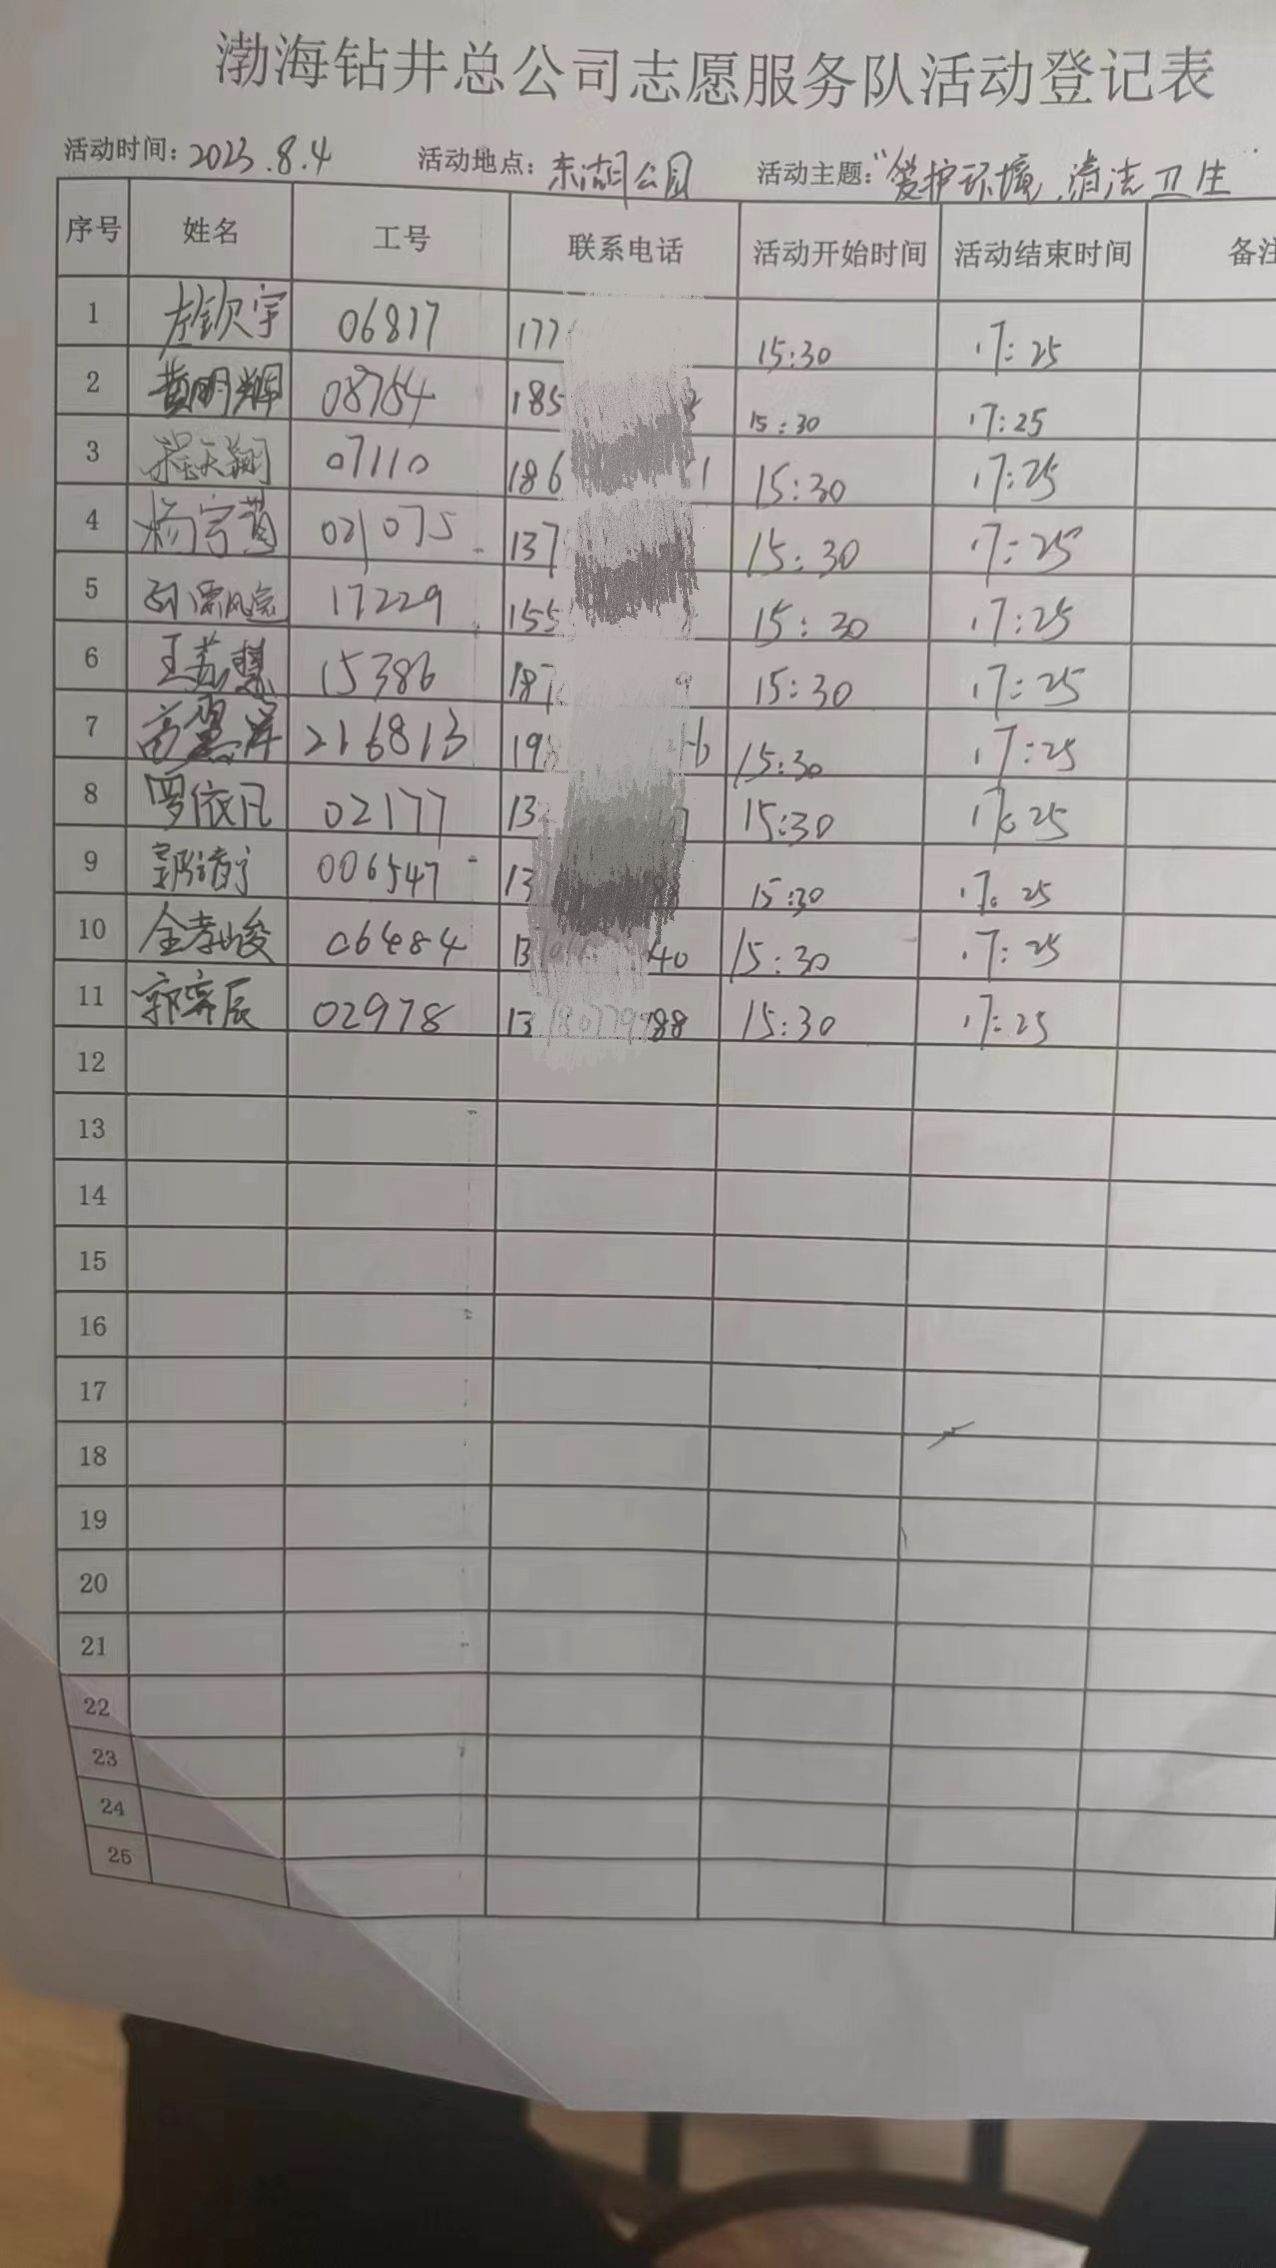 渤海钻井总公司志愿服务队活动登记表
活动时间：2023.8.4 活动地点：东湖公园 活动主题："爱护环境，清洁卫生
序号 姓名 工号 联系电话 活动开始时间 活动结束时间 备注
1 左钦宇 06817 177 15:30 17:25
2 黄明辉 08764 185 15:30 17:25
3 天翔 07110 186 1 15:30 17:25
4 杨宇 021075 137 15:30 17:25
5 17229 155 15:30 17:25
6 王若慧 15386 187 9 15:30 17:25
7 高翼洋 216813 19 6 15:30 17:25
8 罗依凡 02177 13 15:30 17:25
9 006547 13 15:30 17:25
10 全孝峻 06484 13 40 15:30 17:25
11 郭霁辰 02978 13 88 15:30 17:25
12
13
14
15
16
17
18
19
20
21
22
23
24
25